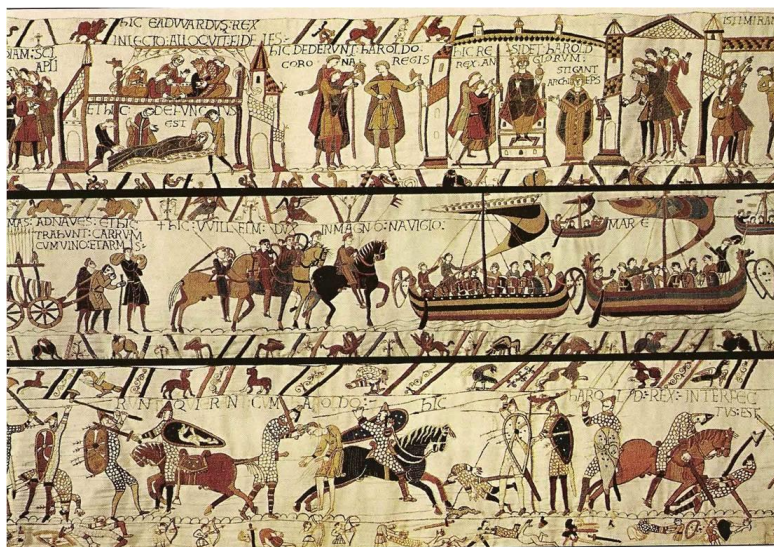 HIC EADWARDVS: REX
IN LECTO: ALLOQVIT: FIDELES:
ET HIC: DEFVNCTVS
EST
HIC DEDERVNT: HAROLDO:
CORONA REGIS
HIC RESIDET: HAROLD
REX: ANGLORVM:
STIGANT
ARCHIEPS
ISTI MIRAN
AD NAVES: ET HIC
TRAHVNT: CARRVM
CVM VINO: ET ARMIS:
HIC: VVILLELM: DVX IN MAGNO: NAVIGIO:
MARE
RVNT QVI ERANT CVM HAROLDO:
HIC HAROLD: REX: INTERFEC
TVS: EST